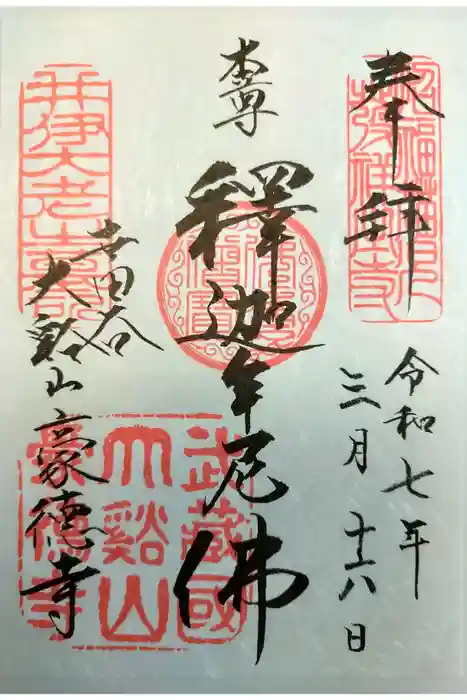 奉拝
令和七年
三月十六日
本尊
釋迦牟尼佛
世田谷
大谿山豪德寺
武藏國
大谿山
豪德寺